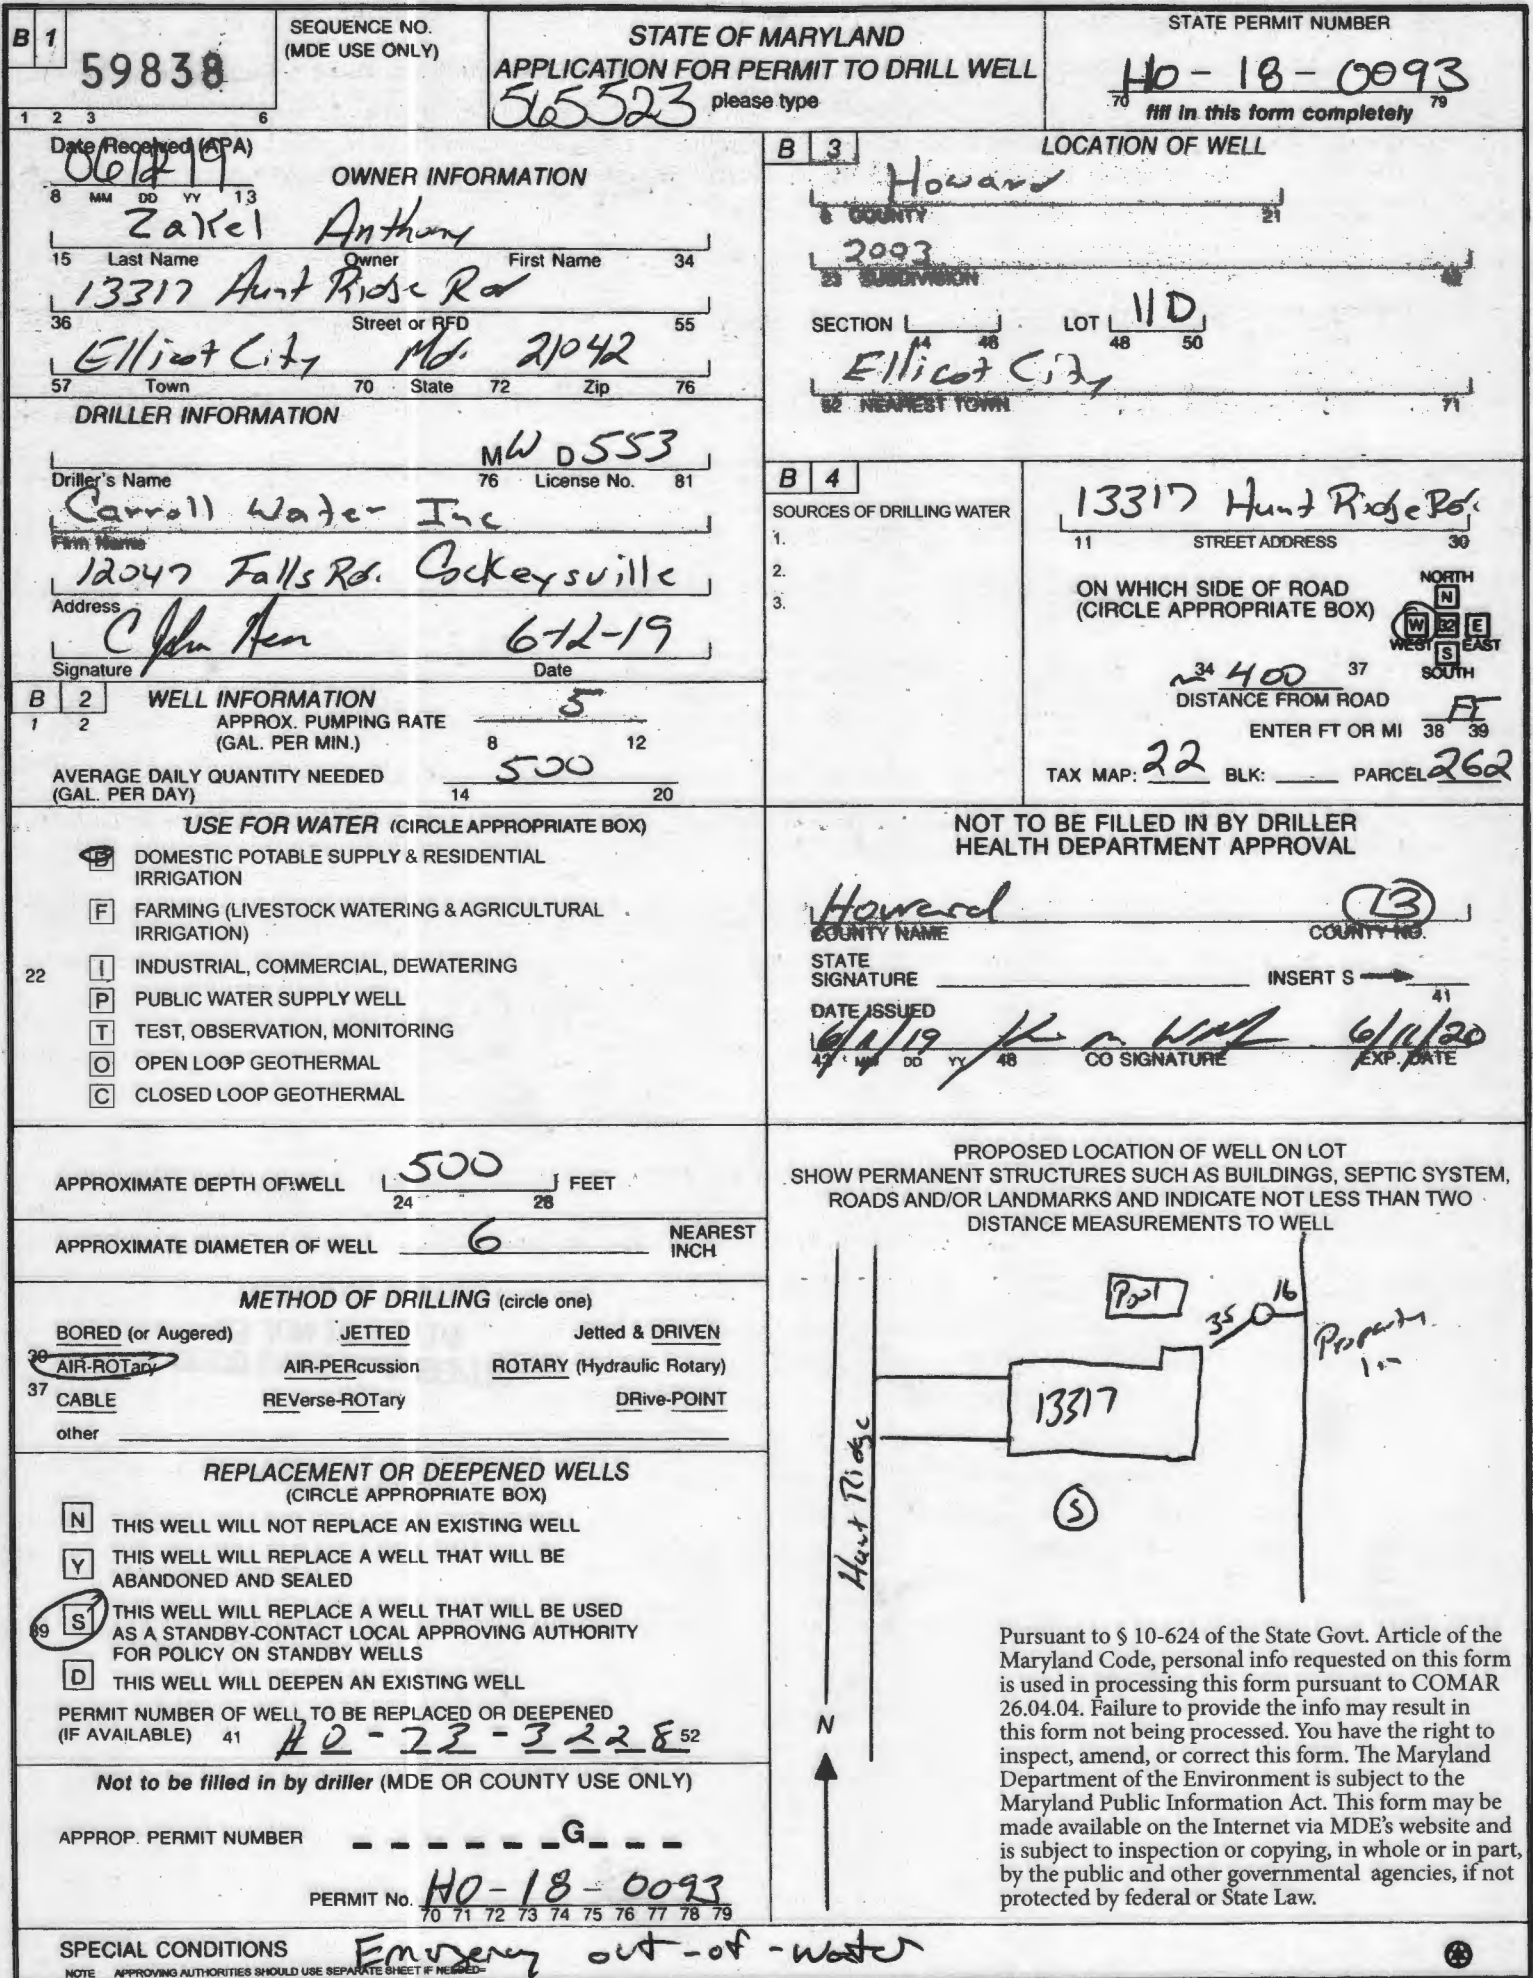 B 1
59838
1 2 3 6
SEQUENCE NO.
(MDE USE ONLY)
STATE OF MARYLAND
APPLICATION FOR PERMIT TO DRILL WELL
565523 please type
STATE PERMIT NUMBER
HO-18-0093
70 79
fill in this form completely
Date Received (APA)
8 MM DD YY 13
OWNER INFORMATION
Zakel Anthony
15 Last Name Owner First Name 34
13317 Hunt Ridge Rd
36 Street or RFD 55
Ellicot City Md. 21042
57 Town 70 State 72 Zip 76
DRILLER INFORMATION
MWD553
Driller's Name 76 License No. 81
Carroll Water Inc
Firm Name
12047 Falls Rd. Cockeysville
Address
C John 6-12-19
Signature Date
B 2 WELL INFORMATION
1 2
APPROX. PUMPING RATE 5
(GAL. PER MIN.) 8 12
AVERAGE DAILY QUANTITY NEEDED 500
(GAL. PER DAY) 14 20
USE FOR WATER (CIRCLE APPROPRIATE BOX)
D DOMESTIC POTABLE SUPPLY & RESIDENTIAL
IRRIGATION
F FARMING (LIVESTOCK WATERING & AGRICULTURAL
IRRIGATION)
22 I INDUSTRIAL, COMMERCIAL, DEWATERING
P PUBLIC WATER SUPPLY WELL
T TEST, OBSERVATION, MONITORING
O OPEN LOOP GEOTHERMAL
C CLOSED LOOP GEOTHERMAL
APPROXIMATE DEPTH OF WELL 500 FEET
24 28
APPROXIMATE DIAMETER OF WELL 6 NEAREST
INCH
METHOD OF DRILLING (circle one)
BORED (or Augered) JETTED Jetted & DRIVEN
30 AIR-ROTary AIR-PERcussion ROTARY (Hydraulic Rotary)
37 CABLE REVerse-ROTary DRive-POINT
other
REPLACEMENT OR DEEPENED WELLS
(CIRCLE APPROPRIATE BOX)
N THIS WELL WILL NOT REPLACE AN EXISTING WELL
Y THIS WELL WILL REPLACE A WELL THAT WILL BE
ABANDONED AND SEALED
39 S THIS WELL WILL REPLACE A WELL THAT WILL BE USED
AS A STANDBY-CONTACT LOCAL APPROVING AUTHORITY
FOR POLICY ON STANDBY WELLS
D THIS WELL WILL DEEPEN AN EXISTING WELL
PERMIT NUMBER OF WELL TO BE REPLACED OR DEEPENED
(IF AVAILABLE) 41 HO-73-3228 52
Not to be filled in by driller (MDE OR COUNTY USE ONLY)
APPROP. PERMIT NUMBER G
PERMIT No. HO-18-0093
70 71 72 73 74 75 76 77 78 79
SPECIAL CONDITIONS Emergency out-of-water
NOTE APPROVING AUTHORITIES SHOULD USE SEPARATE SHEET IF NEEDED
B 3 LOCATION OF WELL
Howard
8 COUNTY 21
2003
23 SUBDIVISION 42
SECTION LOT 11D
44 46 48 50
Ellicot City
52 NEAREST TOWN 71
B 4
SOURCES OF DRILLING WATER
1.
2.
3.
13317 Hunt Ridge Rd.
11 STREET ADDRESS 30
ON WHICH SIDE OF ROAD
(CIRCLE APPROPRIATE BOX)
NORTH
N
W 32 E
WEST EAST
S
SOUTH
34 ~400 37
DISTANCE FROM ROAD
ENTER FT OR MI FT
38 39
TAX MAP: 22 BLK: PARCEL 262
NOT TO BE FILLED IN BY DRILLER
HEALTH DEPARTMENT APPROVAL
Howard 13
COUNTY NAME COUNTY NO.
STATE
SIGNATURE INSERT S
41
DATE ISSUED
6/11/19 6/11/20
43 MM DD YY 48 CO SIGNATURE EXP. DATE
PROPOSED LOCATION OF WELL ON LOT
SHOW PERMANENT STRUCTURES SUCH AS BUILDINGS, SEPTIC SYSTEM,
ROADS AND/OR LANDMARKS AND INDICATE NOT LESS THAN TWO
DISTANCE MEASUREMENTS TO WELL
Pool
35 16
Property
13317
Hunt Ridge
S
N
Pursuant to § 10-624 of the State Govt. Article of the
Maryland Code, personal info requested on this form
is used in processing this form pursuant to COMAR
26.04.04. Failure to provide the info may result in
this form not being processed. You have the right to
inspect, amend, or correct this form. The Maryland
Department of the Environment is subject to the
Maryland Public Information Act. This form may be
made available on the Internet via MDE's website and
is subject to inspection or copying, in whole or in part,
by the public and other governmental agencies, if not
protected by federal or State Law.